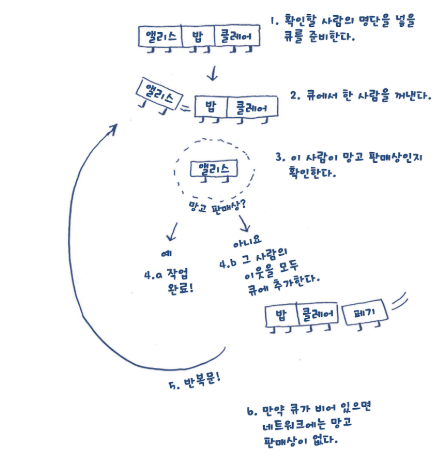 앨리스 밥 클레어
1. 확인할 사람의 명단을 넣을
큐를 준비한다.
앨리스 밥 클레어
2. 큐에서 한 사람을 꺼낸다.
앨리스
망고 판매상?
3. 이 사람이 망고 판매상인지
확인한다.
예
4.a 작업
완료!
아니요
4.b 그 사람의
이웃을 모두
큐에 추가한다.
밥 클레어 페기
5. 반복문!
6. 만약 큐가 비어 있으면
네트워크에는 망고
판매상이 없다.